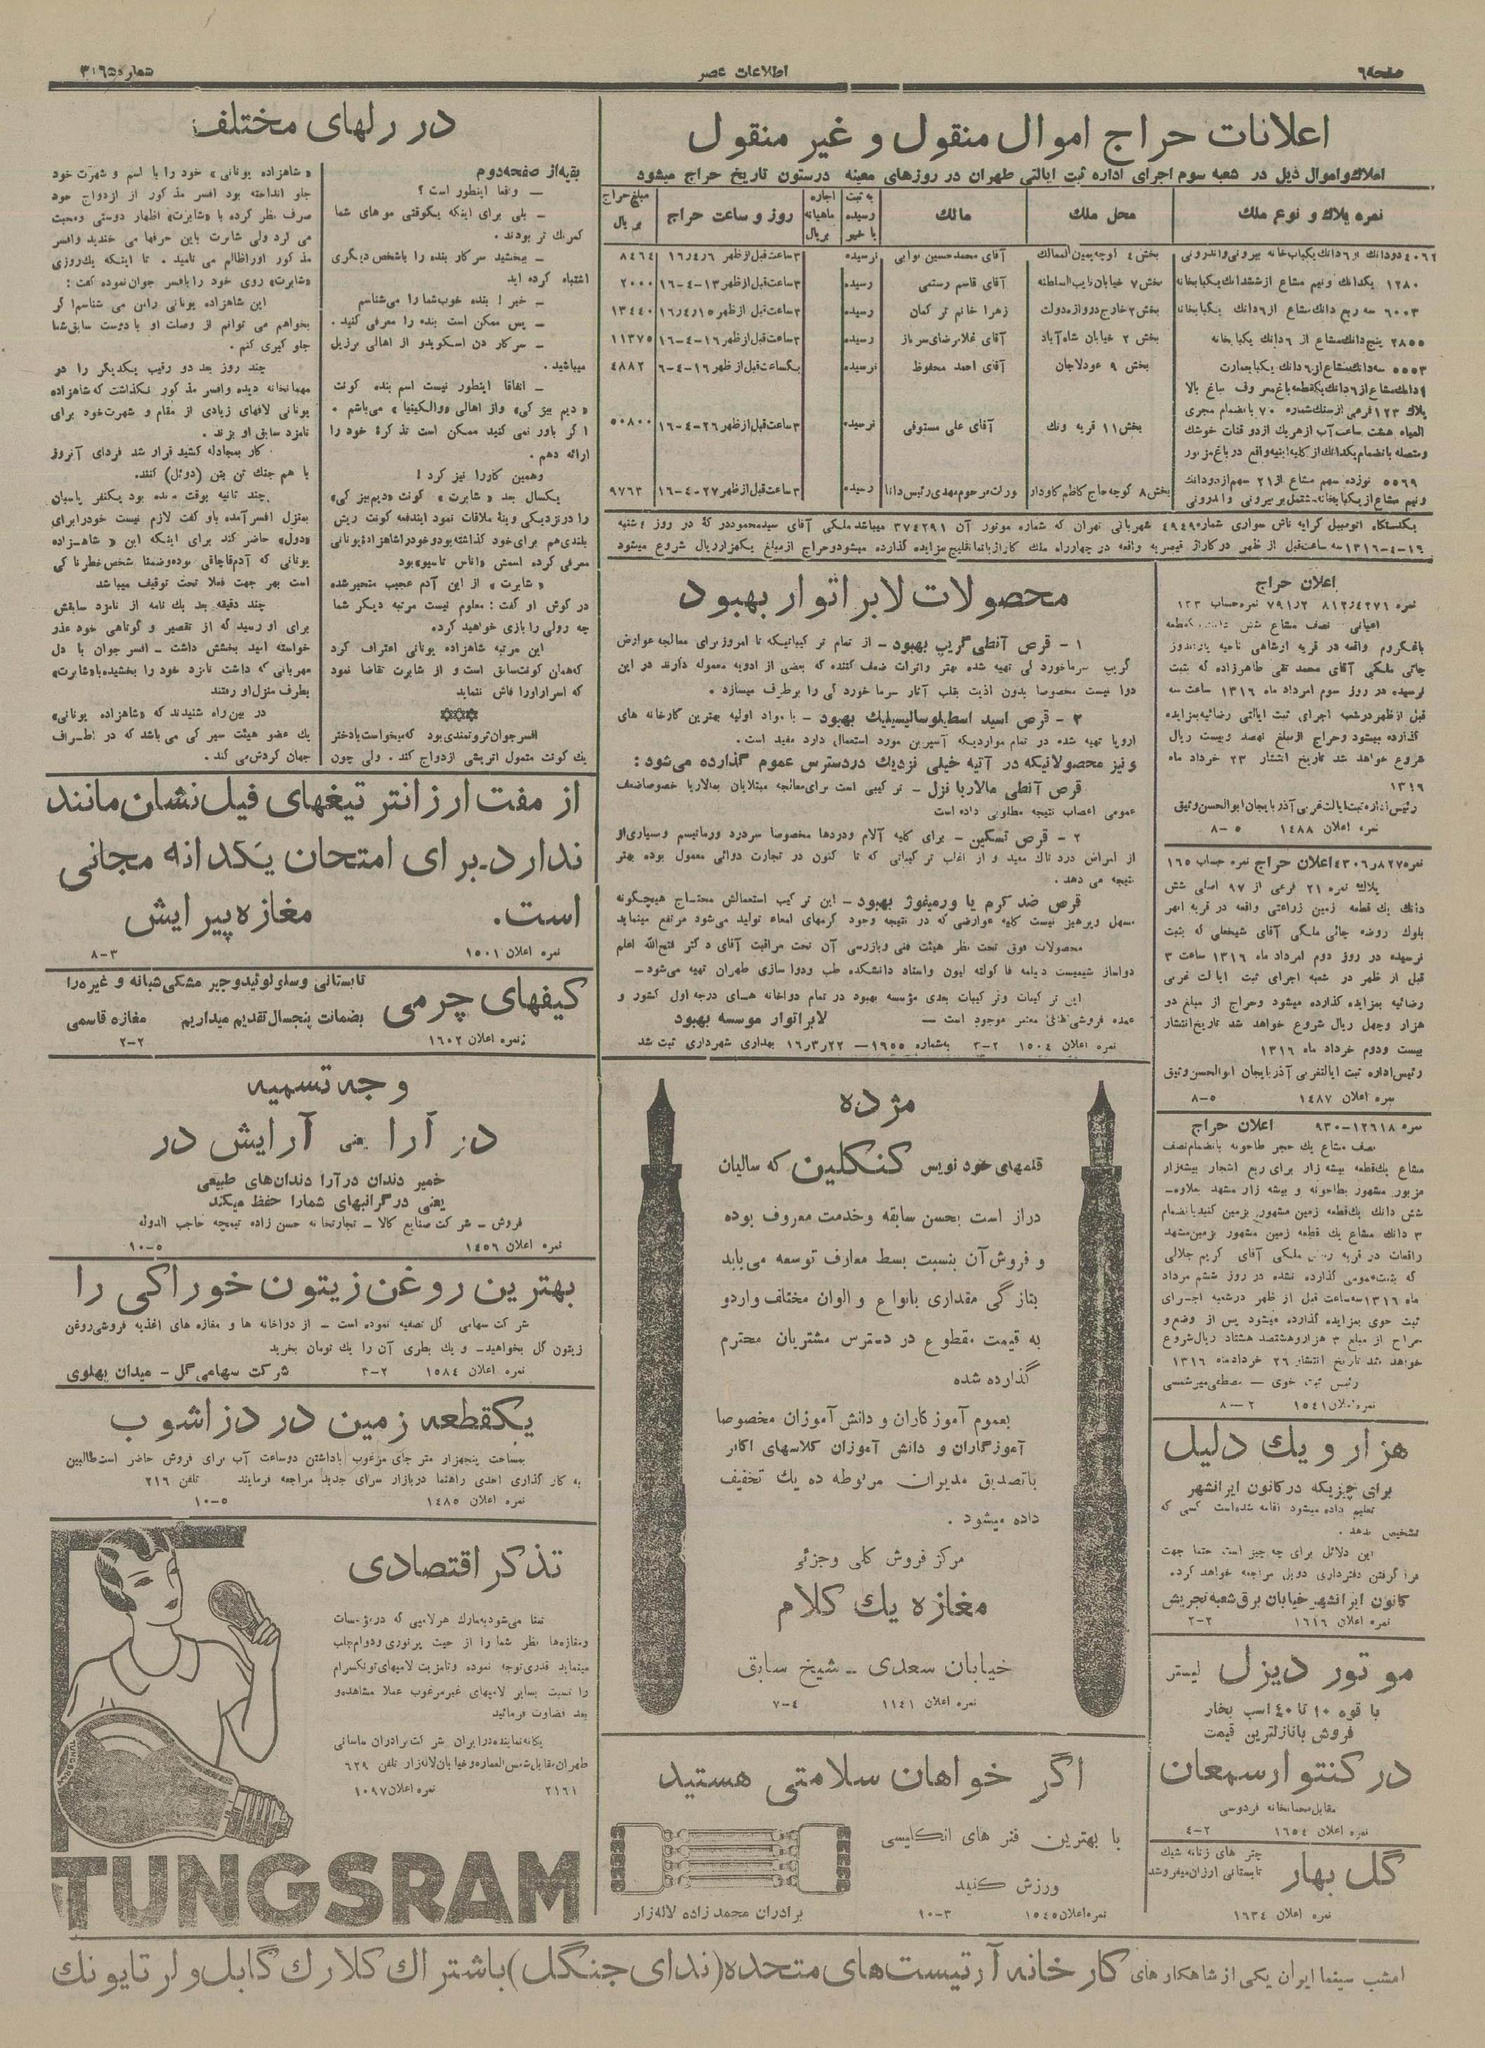 صفحه ٦
اطلاعات عصر
شماره ٣٠٦٥
اعلانات حراج اموال منقول و غیر منقول
املاك و اموال ذیل در شعبه سوم اجرای اداره ثبت ایالتی طهران در روزهای معینه درستون تاریخ حراج میشود
نمره پلاك و نوع ملك
محل ملك
مالك
به ثبت رسیده یا خیر
اجاره ماهیانه بریال
روز و ساعت حراج
مبلغ حراج بریال
٤٠٦٢ دودانك از ٦ دانك یکباب خانه بیرونی واندرونی
بخش ٤ کوچه یمین الممالك
آقای محمدحسین نوابی
نرسیده
٣ ساعت قبل از ظهر ١٦/٤/٦
٨٤٦٤
١٢٨٠ یکدانك ونیم مشاع از ششدانك یکبابخانه
بخش ٧ خیابان نایب السلطنه
آقای قاسم رستمی
رسیده
٣ ساعت قبل از ظهر ١٣-٤-١٦
٢٠٠٠
٦٠٠٣ سه ربع دانك مشاع از ٦ دانك یکبابخانه
بخش ٢ خارج دروازه دولت
زهرا خانم تر کمان
رسیده
٣ ساعت قبل از ظهر ١٦/٤/١٥
١٣٤٤٠
٢٨٥٥ پنج دانك مشاع از ٦ دانك یکبابخانه
بخش ٢ خیابان شاه آباد
آقای غلامرضای سرباز
رسیده
٣ ساعت قبل از ظهر ١٦-٤-١٦
١١٣٧٥
٥٥٥٣ سه دانك مشاع از ٦ دانك یکبابعمارت
بخش ٩ عودلاجان
آقای احمد محفوظ
نرسیده
یکساعت قبل از ظهر ١٦-٤-٦
٤٨٨٢
٤ دانك مشاع از ٦ دانك یکقطعه باغ معروف بباغ بالا
پلاك ١٢٣ فرعی از سنك شماره ٧٠ بانضمام مجری
المیاه هشت ساعت آب از هریك از دو قنات خوشك
ومتصله بانضمام یکدانك از کلیه ابنیه واقع در باغ مزبور
بخش ١١ قریه ونك
آقای علی مستوفی
نرسیده
٣ ساعت قبل از ظهر ٢٦-٤-١٦
٥٠٨٠٠
٥٥٦٩ نوزده سهم مشاع از ٢١ سهم از دودانك
ونیم مشاع از یکبابخانه مشتمل بر بیرونی واندرونی
بخش ٨ کوچه حاج کاظم کاودار
ورات مرحوم مهدی رئیس دانا
رسیده
٣ ساعت قبل از ظهر ٢٧-٤-١٦
٩٧٦٣
یکدستگاه اتومبیل کرایه ناش سواری شماره ٤٩٤٩ شهربانی تهران که شماره موتور آن ٣٧٤٢٩١ میباشد ملکی آقای سیدمحمود در که در روز ٤ شنبه
١٦-٤-١٣١٦ سه ساعت قبل از ظهر در کاراژ قیصریه واقعه در چهارراه ملك کاراژ بمزایده گذارده میشود وحراج از مبلغ یکهزار ریال شروع میشود
اعلان حراج
نمره ٨١٢/٤٢٧١ ٧٩١/٢ نمره حساب ١٢٣
اعیانی نصف مشاع شش دانك یکقطعه
قبل از ظهر در شعبه اجرای ثبت ایالتی رضائیه بمزایده
گذارده میشود وحراج از مبلغ نهصد وبیست ریال
شروع خواهد شد تاریخ انتشار ٢٣ خرداد ماه
١٣١٦
رئیس اداره ثبت ایالت غربی آذربایجان ابوالحسن وثیق
نمره اعلان ١٤٨٨ ٥-٨
نمره ٤٣٠٦/٨٢٧ اعلان حراج نمره حساب ١٦٥
پلاك نمره ٢١ فرعی از ٩٧ اصلی شش
دانك یك قطعه زمین زراعتی واقعه در قریه انهر
بلوك روضه چائی ملکی آقای شیخعلی که بثبت
نرسیده در روز دوم امرداد ماه ١٣١٦ ساعت ٣
قبل از ظهر در شعبه اجرای ثبت ایالت غربی
رضائیه بمزایده گذارده میشود وحراج از مبلغ دو
هزار وچهل ریال شروع خواهد شد تاریخ انتشار
بیست ودوم خرداد ماه ١٣١٦
رئیس اداره ثبت ایالت غربی آذربایجان ابوالحسن وثیق
نمره اعلان ١٤٨٧ ٥-٨
نمره ١٢٦١٨-٩٣٠ اعلان حراج
نصف مشاع یك حجر طاحونه بانضمام نصف
مشاع یکقطعه بیشه زار برای ربع اشجار بیشه زار
مزبور مشهور بطاحونه و بیشه زار مشهد بعلاوه
شش دانك یکقطعه زمین مشهور بزمین کنبد بانضمام
٣ دانك مشاع یك قطعه زمین مشهور بزمین مشهد
ماه ١٣١٦ سه ساعت قبل از ظهر در شعبه اجرای
ثبت خوی بمزایده گذارده میشود پس از وضع و
حراج از مبلغ ٣ هزار وهشتصد هشتاد ریال شروع
خواهد شد تاریخ انتشار ٢٦ خرداد ماه ١٣١٦
رئیس ثبت خوی - مصطفی میرشمسی
نمره اعلان ١٥٤١ ٢-٨
هزار و یك دلیل
برای چیزیکه در کانون ایرانشهر
تعلیم داده میشود اقامه شده است کسی که
تشخیص بدهد.
این دلائل برای چه چیز است حتما جهت
فرا گرفتن دفترداری دوبل مراجعه خواهد کرد.
کانون ایرانشهر خیابان برق شعبه تجریش
نمره اعلان ١٦١٦ ٢-٢
موتور دیزل لیستر
با قوه ١٠ تا ٤٠ اسب بخار
فروش بانازلترین قیمت
در کنتوار سمعان
مقابل مهمانخانه فردوسی
نمره اعلان ١٦٥٤ ٢-٤
گل بهار
چتر های زنانه شیك
تابستانی ارزان میفروشد
نمره اعلان ١٦٣٤
محصولات لابراتوار بهبود
١ - قرص آنطی گریپ بهبود - از تمام تر کیباتیکه تا امروز برای معالجه عوارض
گریپ سرماخوردگی تهیه شده بهتر واثرات ضعف کننده که بعضی از ادویه معموله دارند در این
دوا نیست مخصوصا بدون اذیت بقلب آثار سرما خوردگی را برطرف میسازد.
٢ - قرص اسید استیلوسالیسیلیك بهبود - با مواد اولیه بهترین کارخانه های
اروپا تهیه شده در تمام مواردیکه آسپرین مورد استعمال دارد مفید است.
و نیز محصولاتیکه در آتیه خیلی نزدیك دردسترس عموم گذارده می‌شود:
قرص آنطی مالاریا نزل - تر کیبی است برای معالجه مبتلایان بمالاریا خصوصا ضعف
عمومی اعصاب نتیجه مطلوبی داده است
٢ - قرص تسکین - برای کلیه آلام ودردها مخصوصا سردرد ورماتیسم وبسیاری از
امراض درد ناك مفید و از اغلب تر کیباتی که تا کنون در تجارت دوائی معمول بوده بهتر
نتیجه می دهد.
قرص ضد کرم یا ورمیفوژ بهبود - این تر کیب استعمالش محتاج هیچگونه
مسهل وپرهیز نیست کلیه عوارضی که در نتیجه وجود کرمهای امعاء تولید می‌شود مرتفع مینماید
محصولات فوق تحت نظر هیئت فنی وبازرسی آن تحت مراقبت آقای دکتر فتح‌الله اعلم
دواساز شیمیست دیپلمه فاکولته لیون واستاد دانشکده طب ودوا سازی طهران تهیه می‌شود-
این تر کیبات وتر کیبات بعدی مؤسسه بهبود در تمام دواخانه های درجه اول کشور و
عمده فروشی‌های معتبر موجود است —
لابراتوار موسسه بهبود
نمره اعلان ١٥٠٤ ٢-٣ به شماره ١٩٥٥— ١٦/٣/٢٢ بهداری شهرداری ثبت شد
مژده
قلمهای خود نویس كنكلین که سالیان
دراز است بحسن سابقه وخدمت معروف بوده
و فروش آن بنسبت بسط معارف توسعه می‌یابد
بتازگی مقداری بانواع و الوان مختلف وارد و
به قیمت مقطوع در دسترس مشتریان محترم
گذارده شده
بعموم آموزگاران و دانش آموزان مخصوصا
آموزگاران و دانش آموزان کلاسهای اکابر
باتصدیق مدیران مربوطه ده یك تخفیف
داده میشود.
مرکز فروش کلی وجزئی
مغازه یك کلام
خیابان سعدی - شیخ سابق
نمره اعلان ١١٤١ ٤-٧
اگر خواهان سلامتی هستید
با بهترین فنر های انگلیسی
ورزش کنید
نمره اعلان ١٥٤٥ ٣-١٠ برادران محمد زاده لاله‌زار
در رلهای مختلف
بقیه از صفحه دوم
— واقعا اینطور است؟
— بلی برای اینکه یکوقتی موهای شما
کمرنك تر بودند.
— ببخشید سرکار بنده را باشخص دیگری
اشتباه کرده اید
— خیر! بنده خوب شما را می‌شناسم
— پس ممکن است بنده را معرفی کنید.
— سرکار دن اسکویدو از اهالی برزیل
میباشید.
— اتفاقا اینطور نیست اسم بنده کونت
« دیم بیز کی » واز اهالی « والکینیا » می‌باشم.
اگر باور نمی کنید ممکن است تذکرهٔ خود را
ارائه دهم.
وهمین کاررا نیز کرد!
یکسال بعد « شابرت » کونت «دیم‌بیز کی»
را در نزدیکی وینه ملاقات نمود ایندفعه کونت ریش
بلندی هم برای خود گذاشته بود وخود را شاهزادهٔ یونانی
معرفی کرده اسمش «اناس تاسیو» بود
« شابرت » از این آدم عجیب متحیر شده
در گوش او گفت: معلوم نیست مرتبه دیگر شما
چه رولی را بازی خواهید کرد.
این مرتبه شاهزاده یونانی اعتراف کرد
که همان کونت سابق است و از شابرت تقاضا نمود
که اسرار اورا فاش ننماید
✡✡✡
افسر جوان ثروتمندی بود که میخواست بادختر
یك کونت متمول اتریشی ازدواج کند. ولی چون
«شاهزاده یونانی» خود را با اسم و شهرت خود
جلو انداخته بود افسر مذکور از ازدواج خود
صرف نظر کرده با «شابرت» اظهار دوستی ومحبت
می کرد ولی شابرت باین حرفها می خندید وافسر
مذکور اورا ظالم می نامید. تا اینکه یك‌روزی
«شابرت» روی خود را بافسر جوان نموده گفت:
این شاهزاده یونانی رامن می شناسم! گر
بخواهم می توانم از وصلت او با دوست سابق شما
جلو گیری کنم.
چند روز بعد دو رقیب یکدیگر را در
مهمانخانه دیده وافسر مذکور نگذاشت که شاهزاده
یونانی لافهای زیادی از مقام و شهرت خود برای
نامزد سابق او بزند.
کار بمجادله کشید قرار شد فردای آنروز
با هم جنك تن بتن (دوئل) کنند.
چند ثانیه بوقت مانده بود یکنفر پاسبان
بمنزل افسر آمده باو گفت لازم نیست خود را برای
«دوئل» حاضر کند برای اینکه این « شاهزاده
یونانی که آدم قاچاقی بوده وضمنا شخص خطرناکی
است بهر جهت فعلا تحت توقیف میباشد
چند دقیقه بعد یك نامه از نامزد سابقش
برای او رسید که از تقصیر و گوتاهی خود عذر
خواسته امید بخشش داشت - افسر جوان با دل
مهربانی که داشت نامزد خود را بخشیده با «شابرت»
بطرف منزل او رفتند
در بین راه شنیدند که «شاهزاده یونانی»
یك عضو هیئت سیرکی می باشد که در اطراف
جهان گردش می کند.
از مفت ارزانتر تیغهای فیل نشان مانند
ندارد. برای امتحان یکدانه مجانی
است. مغازه پیرایش
نمره اعلان ١٥٠١ ٣-٨
کیفهای چرمی
تابستانی وسلولوئید وجیر مشکی شبانه و غیره را
بضمانت پنجسال تقدیم میداریم مغازه قاسمی
نمره اعلان ١٦٠٢ ٢-٢
وجه تسمیه
در آرا یعنی آرایش در
خمیر دندان درآرا دندان‌های طبیعی
یعنی درگرانبهای شمارا حفظ میکند
فروش - شرکت صنایع کالا - تجارتخانه حسن زاده تیمچه حاجب الدوله
نمره اعلان ١٤٥٦ ٥-١٠
بهترین روغن زیتون خوراکی را
شرکت سهامی گل تصفیه نموده است - از دواخانه ها و مغازه های اغذیه فروشی روغن
زیتون گل بخواهید- و یك بطری آن را یك تومان بخرید
نمره اعلان ١٥٨٤ ٢-٣ شرکت سهامی گل - میدان پهلوی
یکقطعه زمین در دزاشوب
بمساحت پنجهزار متر جای مرغوب باداشتن دوساعت آب برای فروش حاضر است طالبین
به کار گذاری احدی راهنما دربازار سرای جدید مراجعه فرمایند تلفن ٢١٦
نمره اعلان ١٤٨٥ ٥-١٠
تذکر اقتصادی
تمنا می‌شود به مارك هرلامپی که در مؤسسات
ومغازه‌ها نظر شما را از حیث پرنوری ودوام جلب
مینماید قدری توجه نموده ومزیت لامپهای تونگسرام
را نسبت بسایر لامپهای غیر مرغوب عملا مشاهده و
بعد قضاوت فرمائید
یگانه نماینده در ایران شرکت برادران ساسانی
طهران مقابل شمس العماره وخیابان لاله‌زار تلفن ٦٢٩
٢١٦١ نمره اعلان ١٠٩٧
TUNGSRAM
امشب سینما ایران یکی از شاهکار های کارخانه آرتیست‌های متحده (ندای جنگل) باشتراك كلارك گابل ولرتا یونك